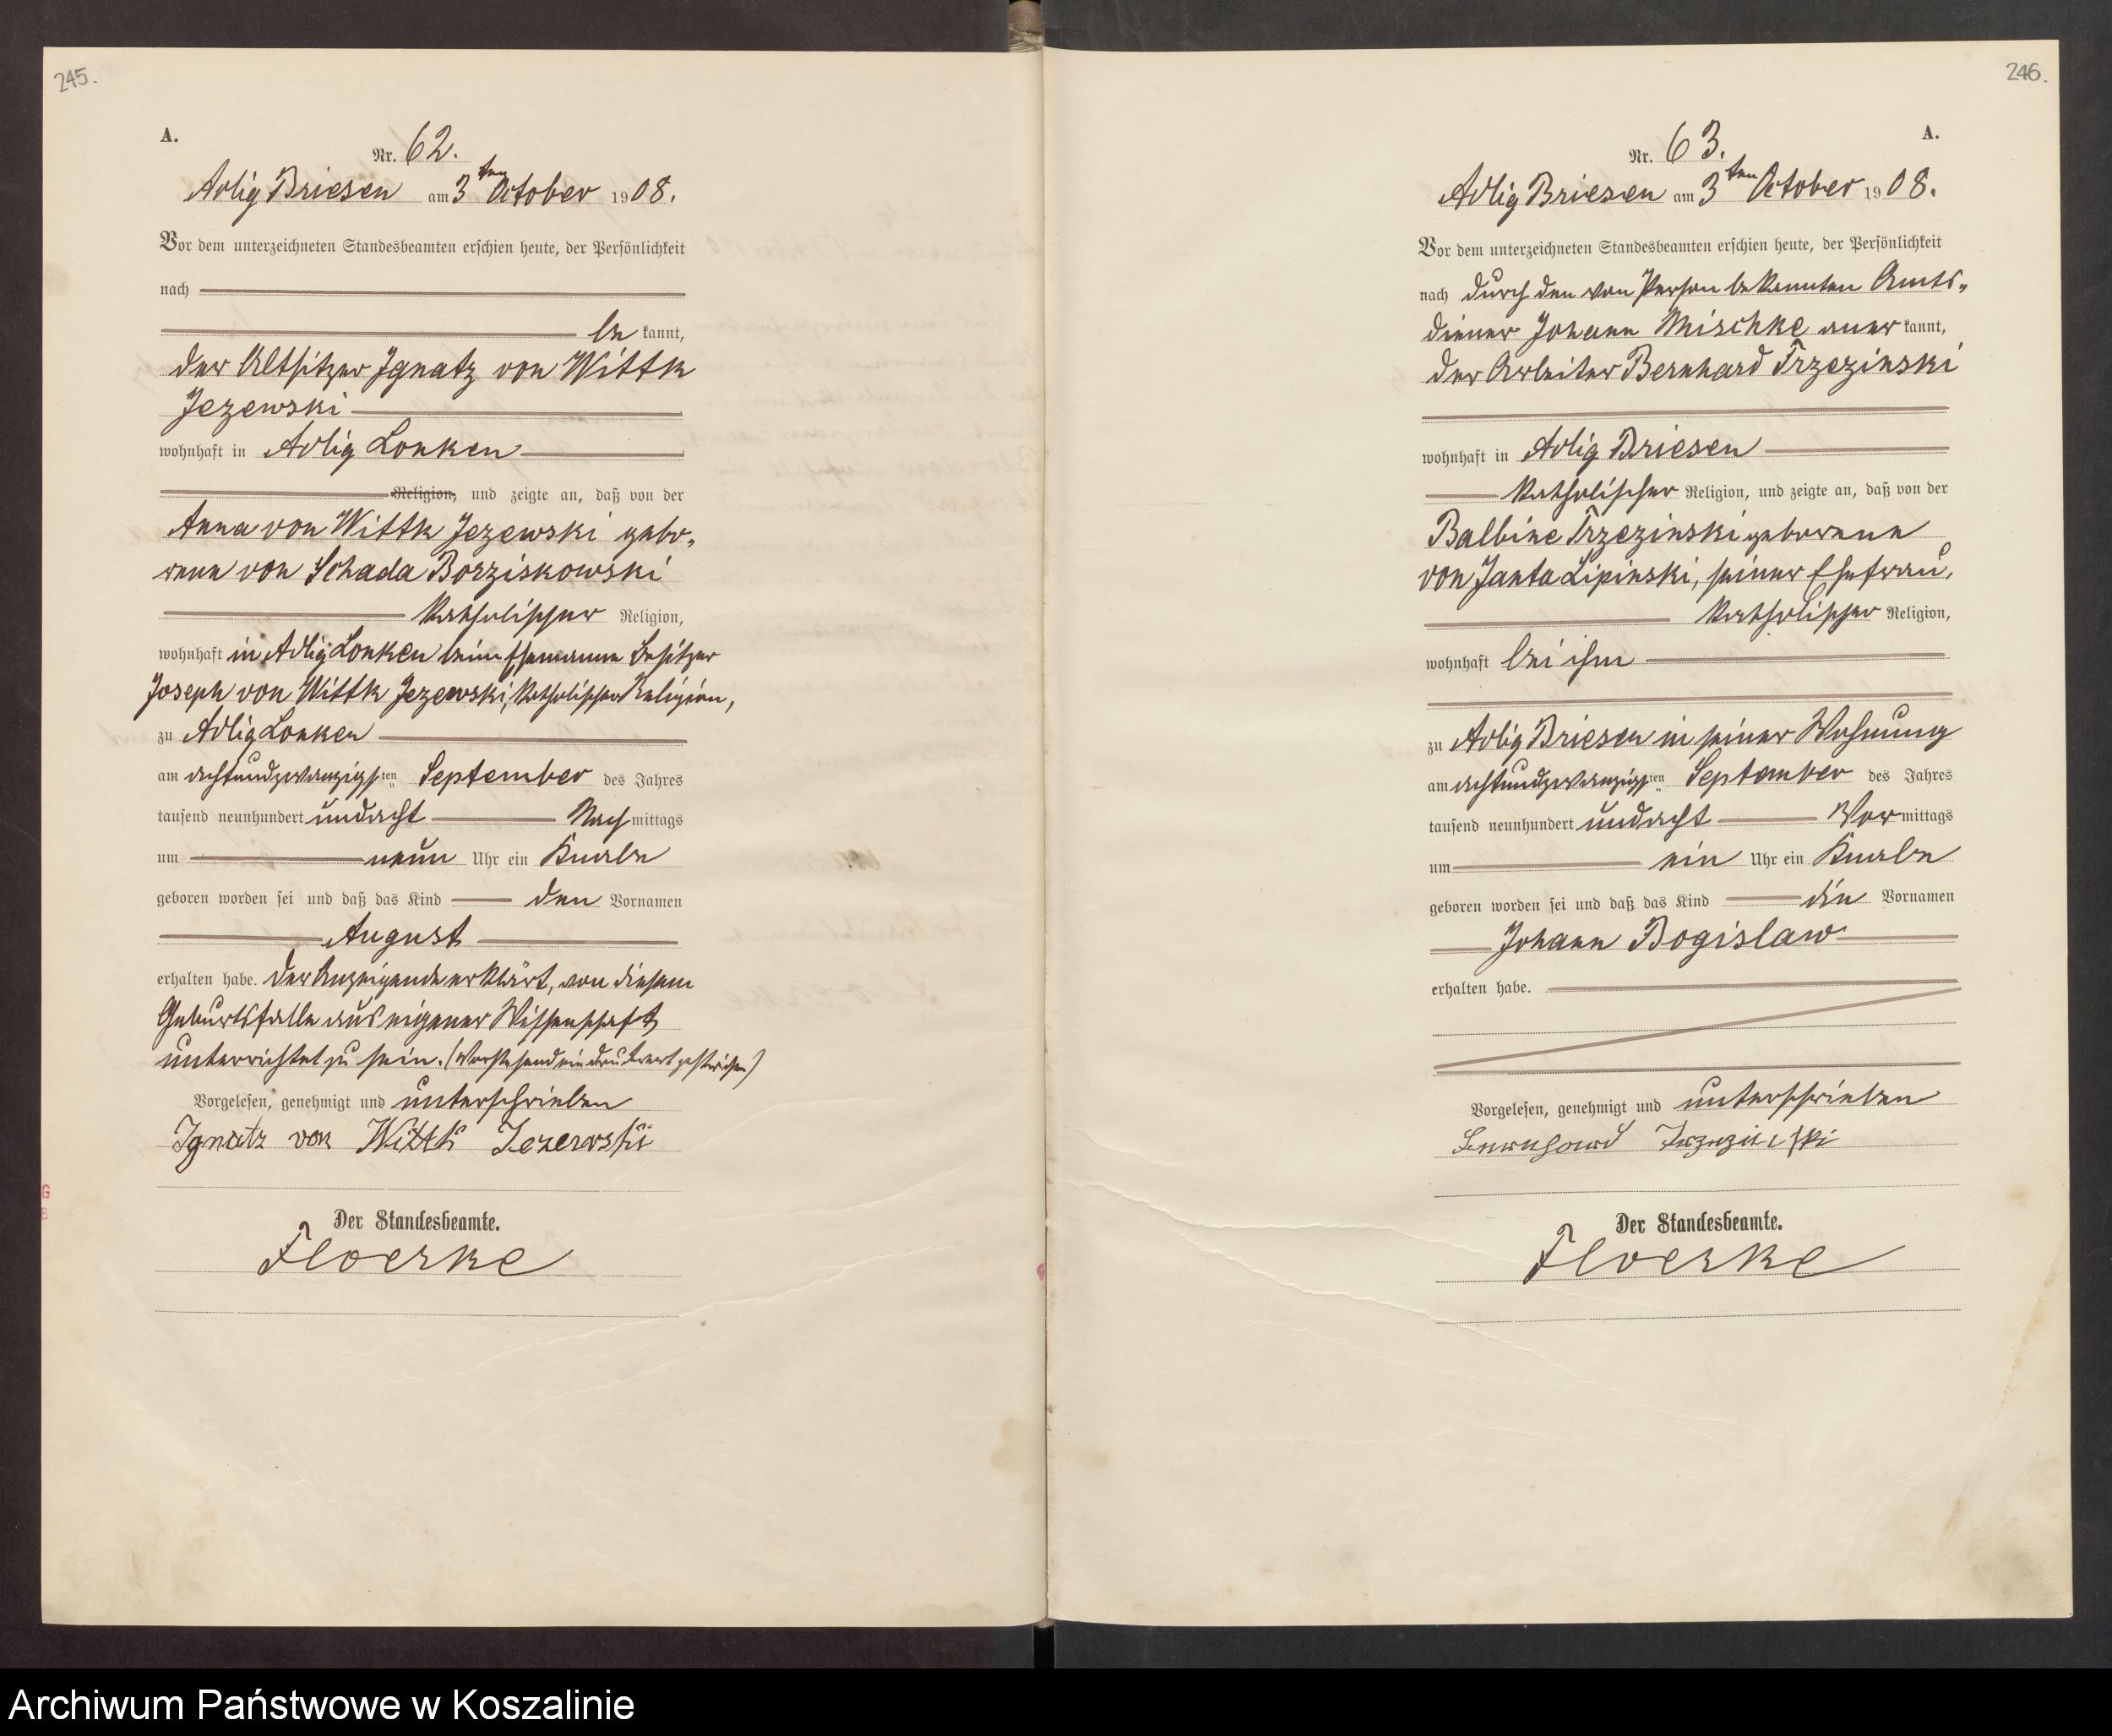 245.
A.
Nr. 62.
Adlig Briesen am 3ten October 1908.
Vor dem unterzeichneten Standesbeamten erschien heute, der Persönlichkeit
nach
be kannt,
der Altsitzer Ignatz von Wittk
Jezewski
wohnhaft in Adlig Lonken
Religion, und zeigte an, daß von der
Anna von Wittk Jezewski gebo-
rene von Schada Borziskowski
katholischer Religion,
wohnhaft in Adlig Lonken beim Ehemanne Besitzer
Joseph von Wittk Jezewski, katholischer Religion,
zu Adlig Lonken
am achtundzwanzigsten September des Jahres
tausend neunhundert undacht Nach mittags
um neun Uhr ein Knabe
geboren worden sei und daß das Kind den Vornamen
August
erhalten habe. Der Anzeigende erklärt, von diesem
Geburtsfalle aus eigener Wissenschaft
unterrichtet zu sein. (Vorstehend ein Druckwort gestrichen)
Vorgelesen, genehmigt und unterschrieben
Ignatz von Wittk Jezewski
Der Standesbeamte.
Floerke
246.
A.
Nr. 63.
Adlig Briesen am 3ten October 1908.
Vor dem unterzeichneten Standesbeamten erschien heute, der Persönlichkeit
nach durch den von Person bekannten Amts-
diener Johann Mischke aner kannt,
der Arbeiter Bernhard Trzezinski
wohnhaft in Adlig Briesen
katholischer Religion, und zeigte an, daß von der
Balbine Trzezinski geborene
von Janta Lipinski, seiner Ehefrau,
katholischer Religion,
wohnhaft bei ihm
zu Adlig Briesen in seiner Wohnung
am achtundzwanzigsten September des Jahres
tausend neunhundert undacht Vor mittags
um ein Uhr ein Knabe
geboren worden sei und daß das Kind die Vornamen
Johann Bogislaw
erhalten habe.
Vorgelesen, genehmigt und unterschrieben
Bernhard Trzezinski
Der Standesbeamte.
Floerke
Archiwum Państwowe w Koszalinie